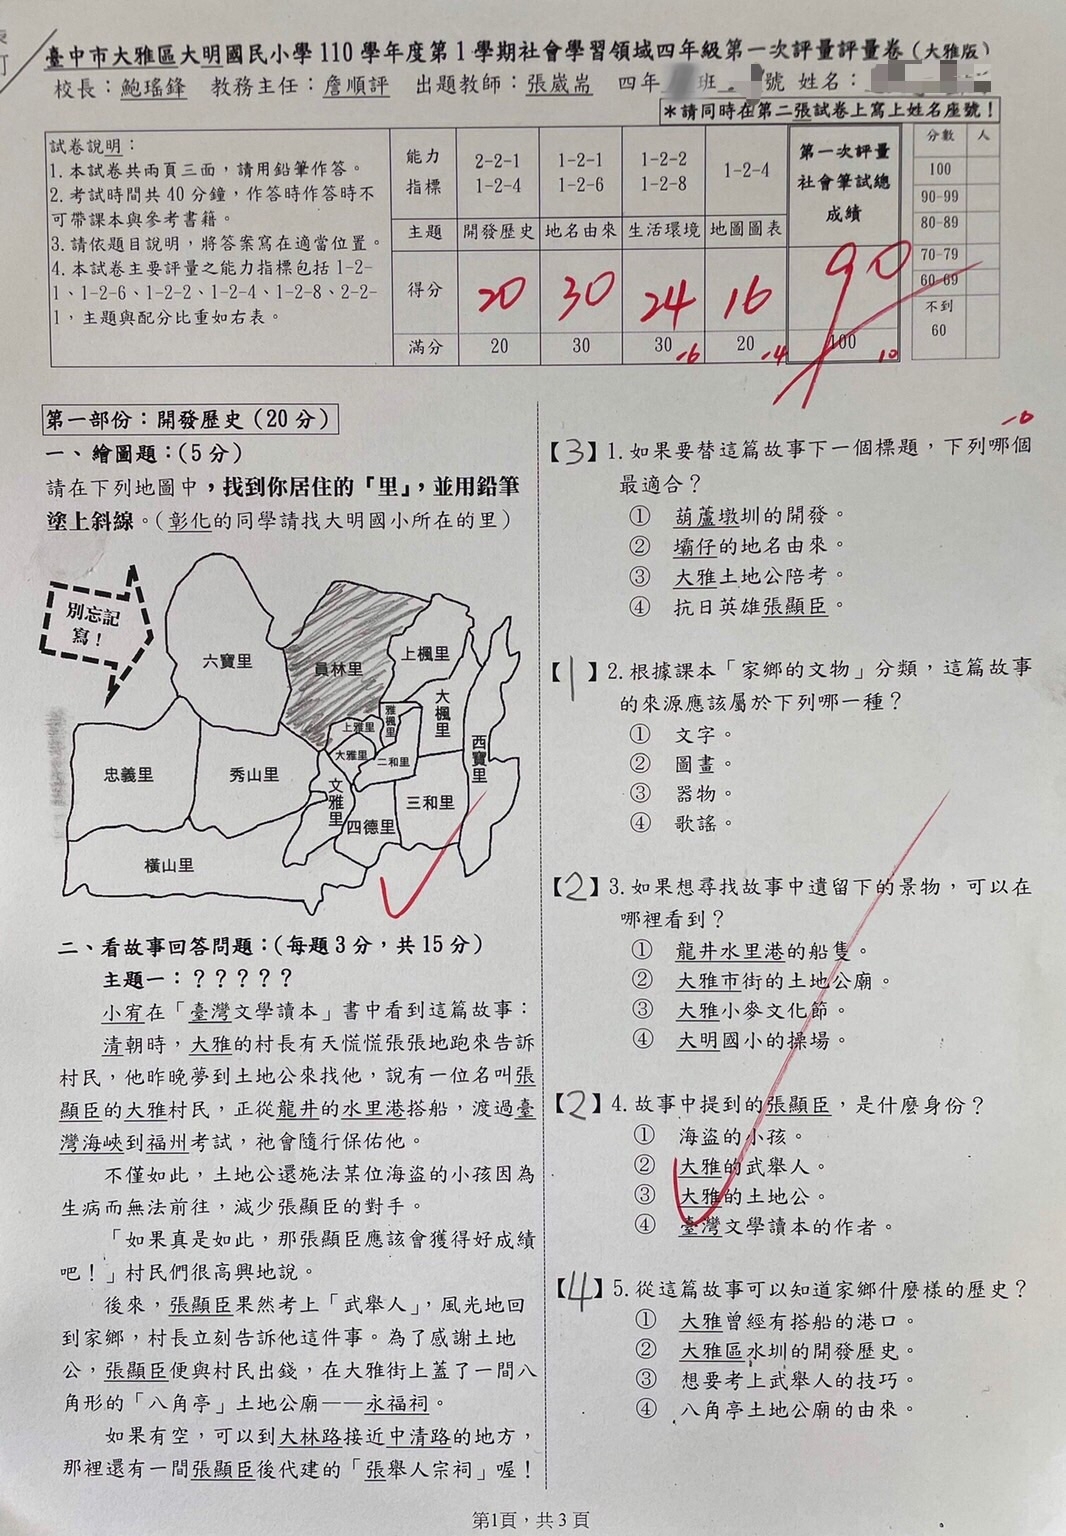 臺中市大雅區大明國民小學110學年度第1學期社會學習領域四年級第一次評量評量卷（大雅版）
校長：鮑瑤鋒 教務主任：詹順評 出題教師：張崴耑 四年 班 號 姓名：
＊請同時在第二張試卷上寫上姓名座號！
試卷說明：
1.本試卷共兩頁三面，請用鉛筆作答。
2.考試時間共40分鐘，作答時作答時不
可帶課本與參考書籍。
3.請依題目說明，將答案寫在適當位置。
4.本試卷主要評量之能力指標包括1-2-
1、1-2-6、1-2-2、1-2-4、1-2-8、2-2-
1，主題與配分比重如右表。
能力
指標
2-2-1
1-2-4
1-2-1
1-2-6
1-2-2
1-2-8
1-2-4
主題 開發歷史 地名由來 生活環境 地圖圖表
得分 20 30 24 16
滿分 20 30 30 -6 20 -4
第一次評量
社會筆試總
成績
90
100 10
分數 人
100
90-99
80-89
70-79
60-69
不到
60
第一部份：開發歷史（20分）
一、繪圖題：（5分）
請在下列地圖中，找到你居住的「里」，並用鉛筆
塗上斜線。（彰化的同學請找大明國小所在的里）
別忘記
寫！
六寶里
員林里
上楓里
大楓里
西寶里
雅楓里
上雅里
大雅里
二和里
忠義里
秀山里
文雅里
四德里
三和里
橫山里
二、看故事回答問題：（每題3分，共15分）
主題一：？？？？？
小宥在「臺灣文學讀本」書中看到這篇故事：
清朝時，大雅的村長有天慌慌張張地跑來告訴
村民，他昨晚夢到土地公來找他，說有一位名叫張
顯臣的大雅村民，正從龍井的水里港搭船，渡過臺
灣海峽到福州考試，祂會隨行保佑他。
不僅如此，土地公還施法某位海盜的小孩因為
生病而無法前往，減少張顯臣的對手。
「如果真是如此，那張顯臣應該會獲得好成績
吧！」村民們很高興地說。
後來，張顯臣果然考上「武舉人」，風光地回
到家鄉，村長立刻告訴他這件事。為了感謝土地
公，張顯臣便與村民出錢，在大雅街上蓋了一間八
角形的「八角亭」土地公廟——永福祠。
如果有空，可以到大林路接近中清路的地方，
那裡還有一間張顯臣後代建的「張舉人宗祠」喔！
-0
【3】1.如果要替這篇故事下一個標題，下列哪個
最適合？
① 葫蘆墩圳的開發。
② 壩仔的地名由來。
③ 大雅土地公陪考。
④ 抗日英雄張顯臣。
【1】2.根據課本「家鄉的文物」分類，這篇故事
的來源應該屬於下列哪一種？
① 文字。
② 圖畫。
③ 器物。
④ 歌謠。
【2】3.如果想尋找故事中遺留下的景物，可以在
哪裡看到？
① 龍井水里港的船隻。
② 大雅市街的土地公廟。
③ 大雅小麥文化節。
④ 大明國小的操場。
【2】4.故事中提到的張顯臣，是什麼身份？
① 海盜的小孩。
② 大雅的武舉人。
③ 大雅的土地公。
④ 臺灣文學讀本的作者。
【4】5.從這篇故事可以知道家鄉什麼樣的歷史？
① 大雅曾經有搭船的港口。
② 大雅區水圳的開發歷史。
③ 想要考上武舉人的技巧。
④ 八角亭土地公廟的由來。
第1頁，共3頁